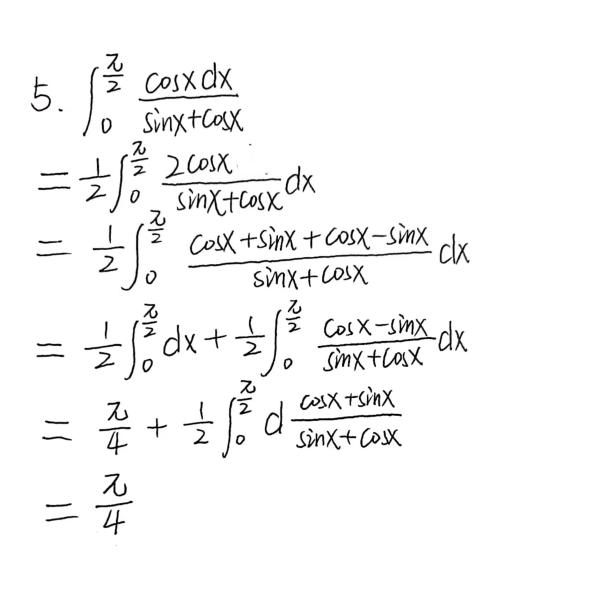 5. ∫₀^{π/2} \frac{cosx dx}{sinx+cosx}
= \frac{1}{2} ∫₀^{π/2} \frac{2cosx}{sinx+cosx} dx
= \frac{1}{2} ∫₀^{π/2} \frac{cosx+sinx+cosx-sinx}{sinx+cosx} dx
= \frac{1}{2} ∫₀^{π/2} dx + \frac{1}{2} ∫₀^{π/2} \frac{cosx-sinx}{sinx+cosx} dx
= \frac{π}{4} + \frac{1}{2} ∫₀^{π/2} d \frac{cosx+sinx}{sinx+cosx}
= \frac{π}{4}